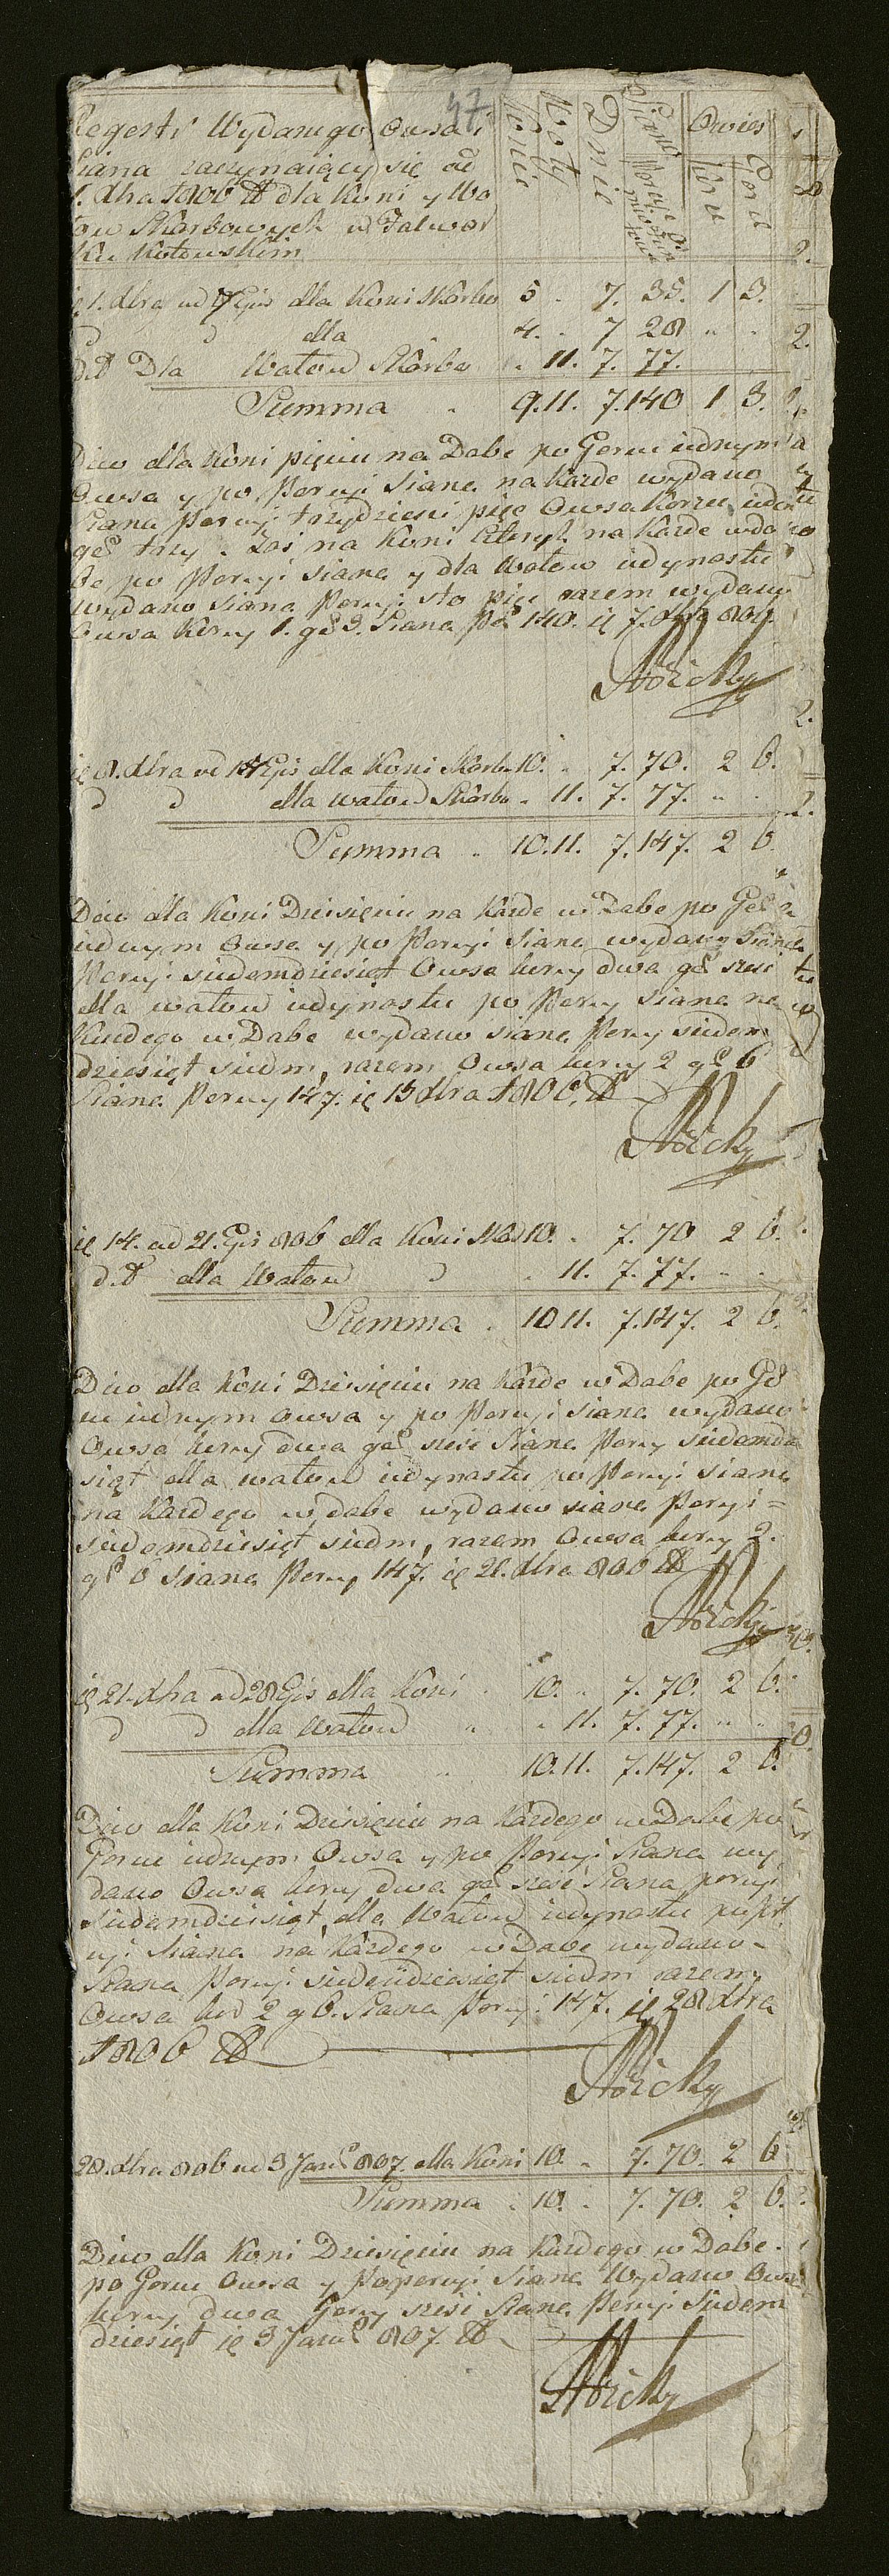 47
Regestr Wydanego Owsa i
Siana zaczynaiący się od
1. Xbra 1806 Ru dla Koni y Wo
łow Skarbowych w Falwar
ku Kotowskim
Konie Woły Dnie Siano Owies
Porcye Kor Gar
ię 1. Xbra ad 7 Ejus dla Koni Skarbo 5 . 7. 35. 1 3.
d d dla 4. . 7 28 " .
d.to Dla Wołow Skarbo . 11. 7. 77.
Summa . 9. 11. 7. 140 1 3.
Dico dla Koni pięciu na Dobe po Gcru iednym
Owsa y po Porcyi Siana na Kazde wydano
Siana Porcyi trzydzieści pięć Owsa Korzec ieden
gcy trzy. Zaś na Koni Cztyry na Kazde w do
be po Porcyi siana y dla Wołow iedynastu
wydano siana Porcyi sto pięć razem wydano
Owsa Korcy 1. gcy 3. Siana Por 140. ię 7. Xbra 806.
ię 8. Xbra ad 14 Ejus dla Koni Skarbo 10. . 7. 70. 2 6.
d d dla wołow Skarbo . 11. 7. 77. " .
Summa . 10. 11. 7. 147. 2 6.
Dico dla Koni Dziesięciu na Kazde w Dobe po Gcu
iednym owsa y po Porcyi siana wydano Siana
Porcyi siedemdziesiąt Owsa korcy dwa gcy sześć
dla wołow iedynastu po Porcy siana na
Kazdego w Dobe wydano siana Porcy siedem
dziesiąt siedm, razem Owsa korcy 2 gcy 6
Siana Porcy 147. ię 15 Xbra 1806. Ru
ię 14. ad 21. Ejus 806 dla Koni Skar 10. . 7. 70 2 6.
d.to dla Wołow d . 11. 7. 77. " .
Summa . 10 11. 7. 147. 2 6.
Dico dla Koni Dziesięciu na Kazde w Dobe po Gcr
cu iednym owsa y po Porcyi siana wydano
Owsa korcy dwa gcy sześć Siana Porcy siedemdzie
siąt dla wołow iedynastu po Porcyi siana
na Kazdego w dobe wydano siana Porcyi =
siedemdziesiąt siedm, razem Owsa korcy 2.
gcy 6 Siana Porcy 147. ię 21. Xbra 806 Ru
ię 21. Xbra ad 28 Ejus dla Koni . 10. " 7. 70. 2 6.
d d dla Wołow " . 11. 7. 77. " "
Summa . 10. 11. 7. 147. 2 6.
Dico dla Koni Dziesięciu na Kazdego w Dobe po
Gorcu iednym Owsa y po Porcyi Siana wy
dano Owsa korcy dwa gcy sześć Siana porcyi
Siedemdziesiąt dla Wołow iedynastu po por
cyi Siana na Kazdego w Dobe wydano -
Siana Porcyi siedemdziesiąt siedm razem
Owsa kor 2 g 6. Siana Porcyi 147. ię 28 Xbra
1806 Ru
28. Xbra 806 ad 3 Janu 807. dla Koni 10. " 7. 70. 2 6.
Summa . 10. . 7. 70. 2 6.
Dico dla Koni Dziesięciu na Kazdego w Dobe.
po Gorcu Owsa y Poporcyi Siana Wydano Owsa
korcy dwa Garcy sześć Siana Porcyi Siedem
dziesiąt ię 3 Janu 807. Ru